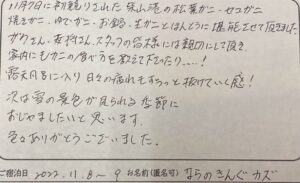 11月7日に初競りされた柴山港の松葉ガニ・セコガニ
焼きガニ・ゆでガニ・お鍋・生ガニとほんとうに堪能させて頂きました
女将さん、スタッフの皆様には親切にして頂き
家内にもガニの食べ方を教えて下さったり……!
露天風呂に入り日々の疲れもすうっと抜けていく感!
次は雪の景色が見られる季節に
おじゃましたいと思います.
色々ありがとうございました.
ご宿泊日 2022.11.8〜9 お名前(匿名可) ならのきんぐカズ